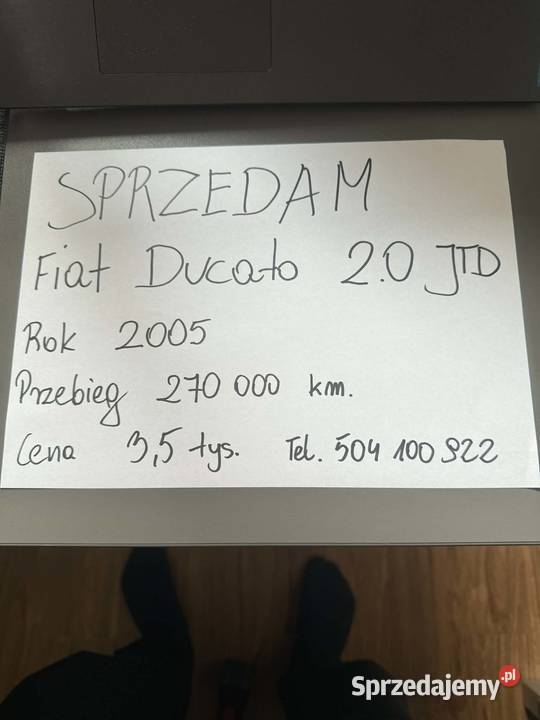 SPRZEDAM
Fiat Ducato 2.0 JTD
Rok 2005
Przebieg 270 000 km.
Cena 3,5 tys. Tel. 504 100 922
Sprzedajemy.pl